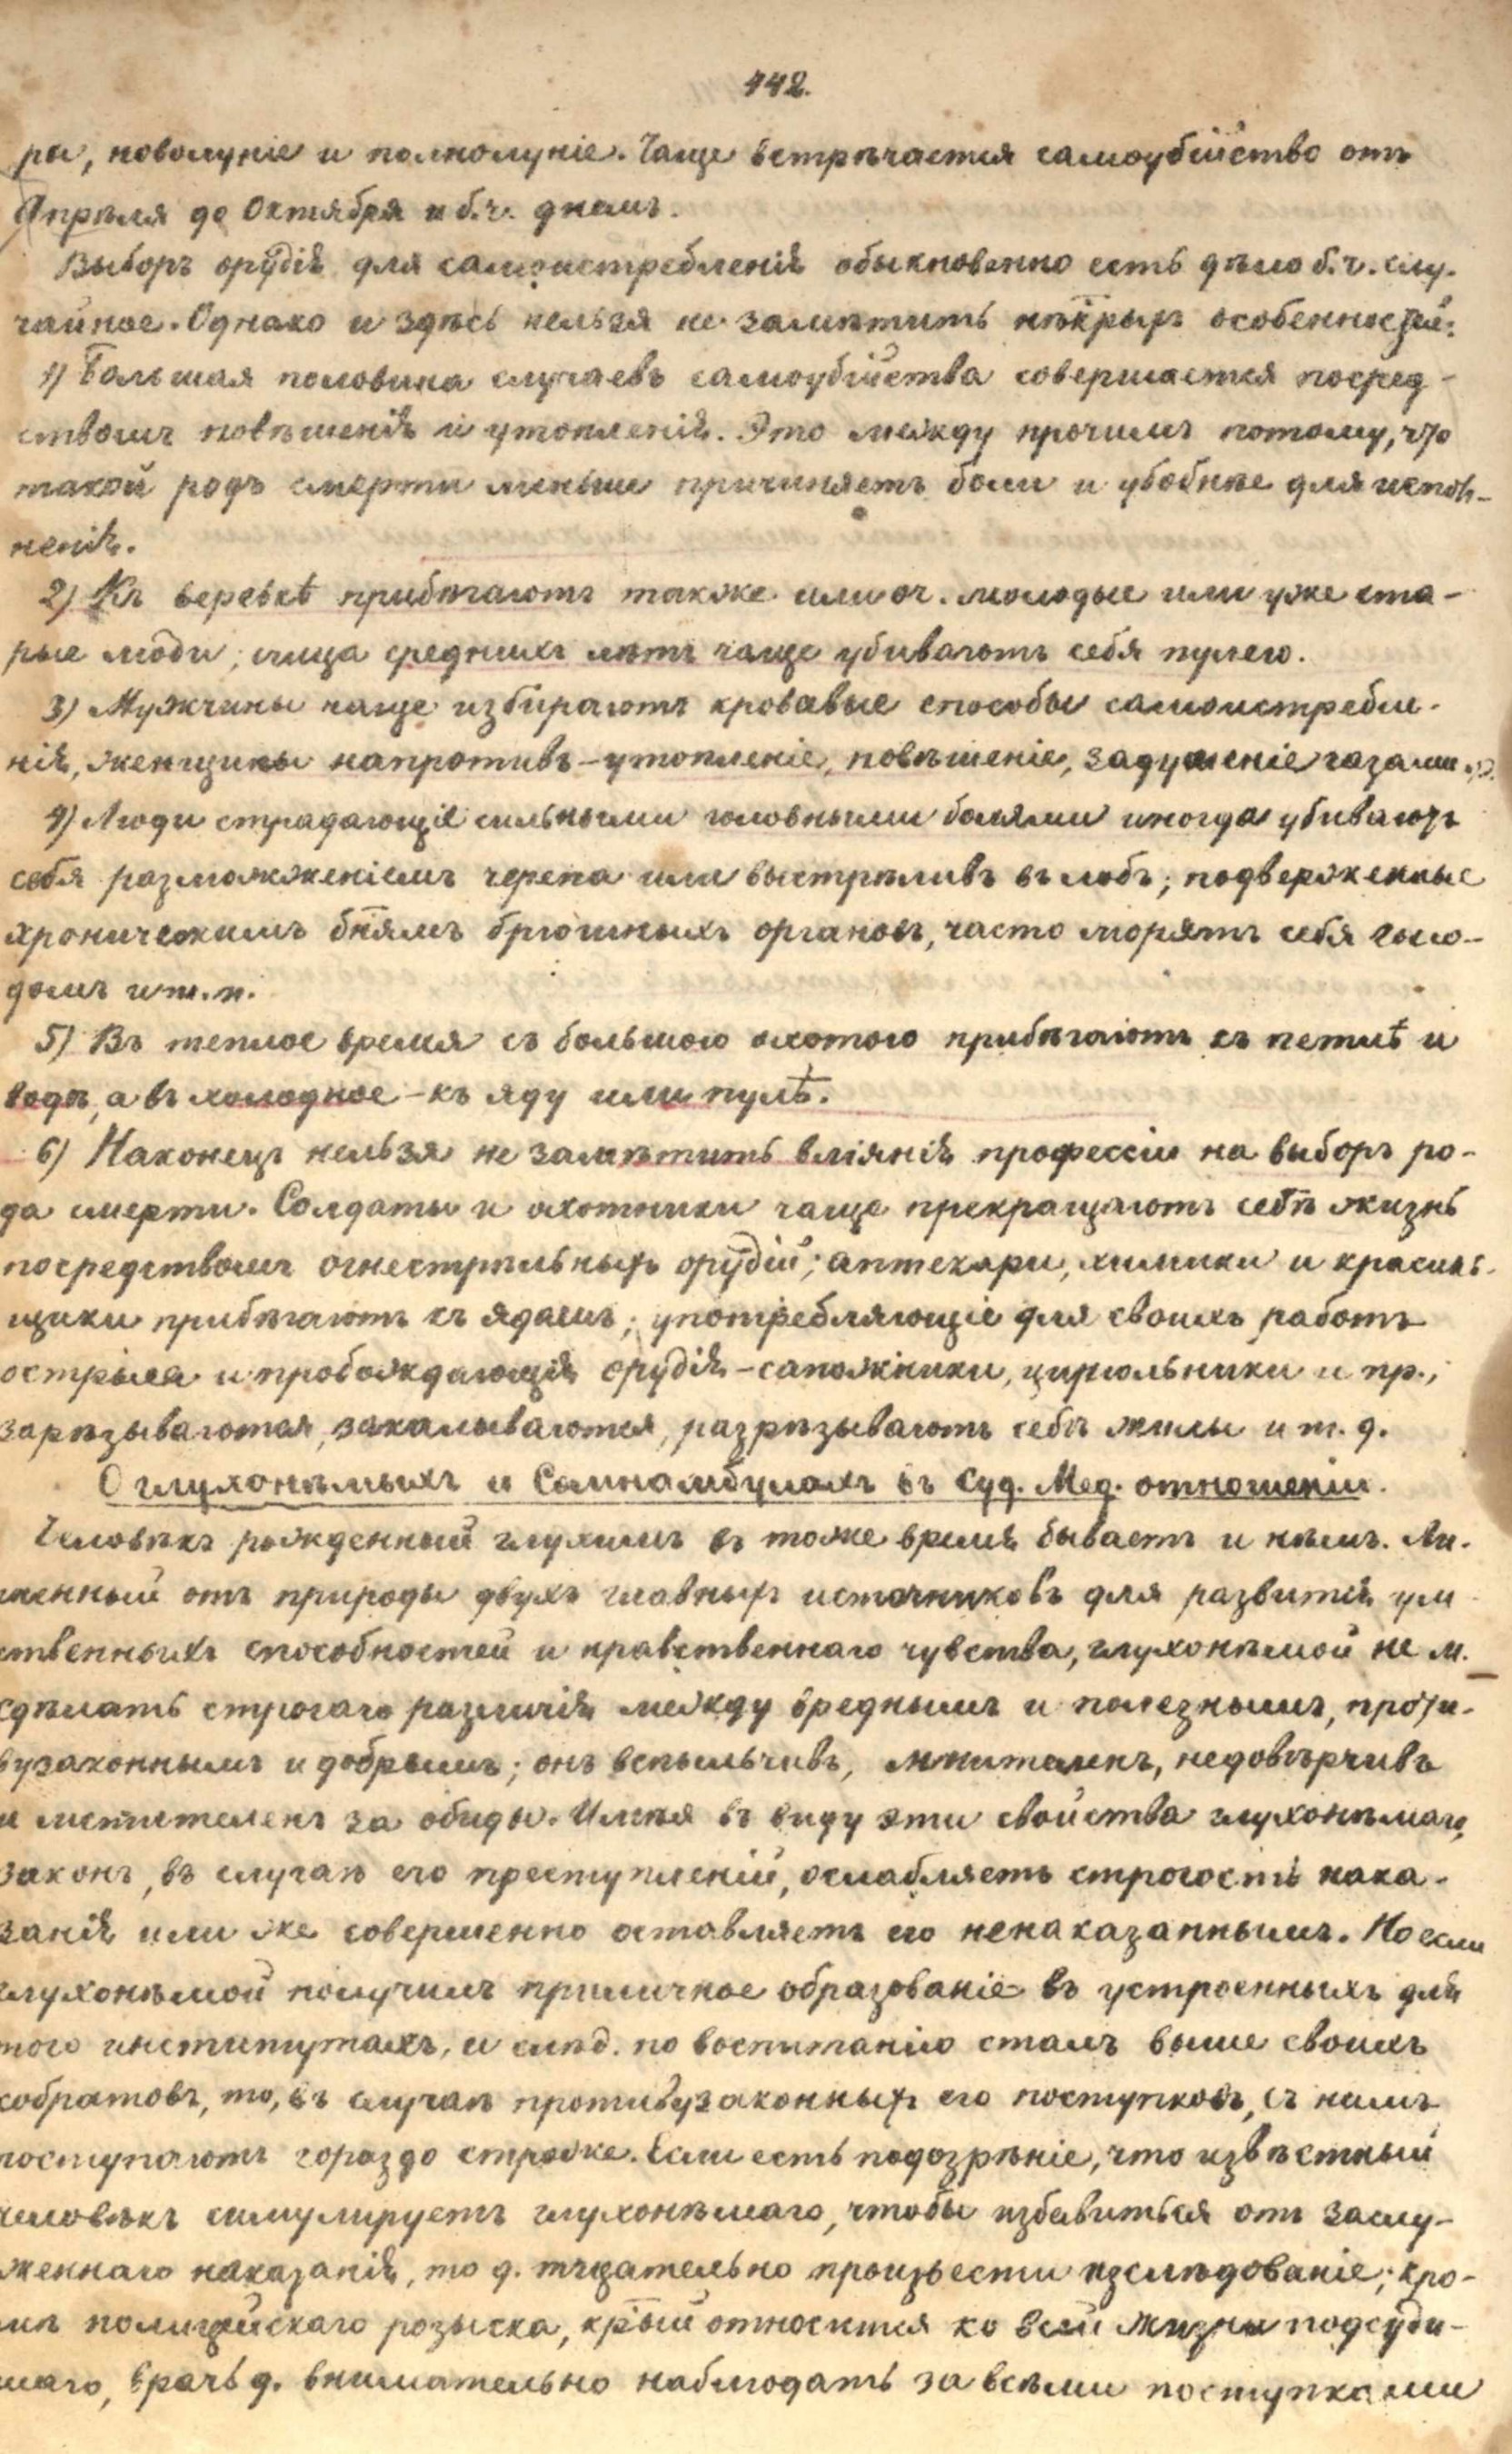 442.
ры, новолуніе и полнолуніе. Чаще встрѣчается самоубійство отъ
Апрѣля до Октября и б.ч. днемъ.
Выборъ орудія для самоистребленія обыкновенно есть дѣло б.ч. слу-
чайное. Однако и здѣсь нельзя не замѣтить нѣкрыхъ особенностей:
1) Большая половина случаевъ самоубійства совершается посред-
ствомъ повѣшенія и утопленія. Это между прочимъ потому, что
такой родъ смерти меньше причиняетъ боли и удобнѣе для испол-
ненія.
2) Къ веревкѣ прибѣгаютъ также или оч. молодые или уже ста-
рые люди; лица среднихъ лѣтъ чаще убиваютъ себя пулею.
3) Мужчины чаще избираютъ кровавые способы самоистребле-
нія, женщины напротивъ - утопленіе, повѣшеніе, задушеніе газами
4) Люди страдающіе сильными головными болями иногда убиваютъ
себя размозженіемъ черепа или выстрѣливъ въ лобъ; подверженные
хроническимъ бнямъ брюшныхъ органовъ, часто морятъ себя голо-
домъ и т.п.
5) Въ теплое время съ большою охотою прибѣгаютъ къ петлѣ и
водѣ, а въ холодное - къ яду или пулѣ.
6) Наконецъ нельзя не замѣтить вліянія профессіи на выборъ ро-
да смерти. Солдаты и охотники чаще прекращаютъ себѣ жизнь
посредствомъ огнестрѣльныхъ орудій; аптекари, химики и красиль-
щики прибѣгаютъ къ ядамъ; употребляющіе для своихъ работъ
острыя и пробождающія орудія - сапожники, цирюльники и пр.,
зарѣзываются, закалываются, разрѣзываютъ себѣ жилы и т. д.
О глухонѣмыхъ и Сомнамбулахъ въ Суд. Мед. отношеніи.
Человѣкъ рожденный глухимъ въ тоже время бываетъ и нѣмъ. Ли-
шенный отъ природы двухъ главныхъ источниковъ для развитія ум
ственныхъ способностей и нравственнаго чувства, глухонѣмой не м.
сдѣлать строгаго различія между вреднымъ и полезнымъ, проти-
вузаконнымъ и добрымъ; онъ вспыльчивъ, мнителенъ, недовѣрчивъ
и мстителенъ за обиды. Имѣя въ виду эти свойства глухонѣмаго,
законъ, въ случаѣ его преступленій, ослабляетъ строгость нака-
занія или же совершенно оставляетъ его ненаказаннымъ. Но если
глухонѣмой получилъ приличное образованіе въ устроенныхъ для
того институтахъ, и слѣд. по воспитанію сталъ выше своихъ
собратовъ, то, въ случаѣ противузаконныхъ его поступковъ, съ нимъ
поступаютъ гораздо строже. Если есть подозрѣніе, что извѣстный
человѣкъ симулируетъ глухонѣмаго, чтобы избавиться отъ заслу-
женнаго наказанія, то д. тщательно произвести изслѣдованіе; кро-
мѣ полицейскаго розыска, крый относится ко всей жизни подсуди-
маго, врачъ д. внимательно наблюдать за всѣми поступками